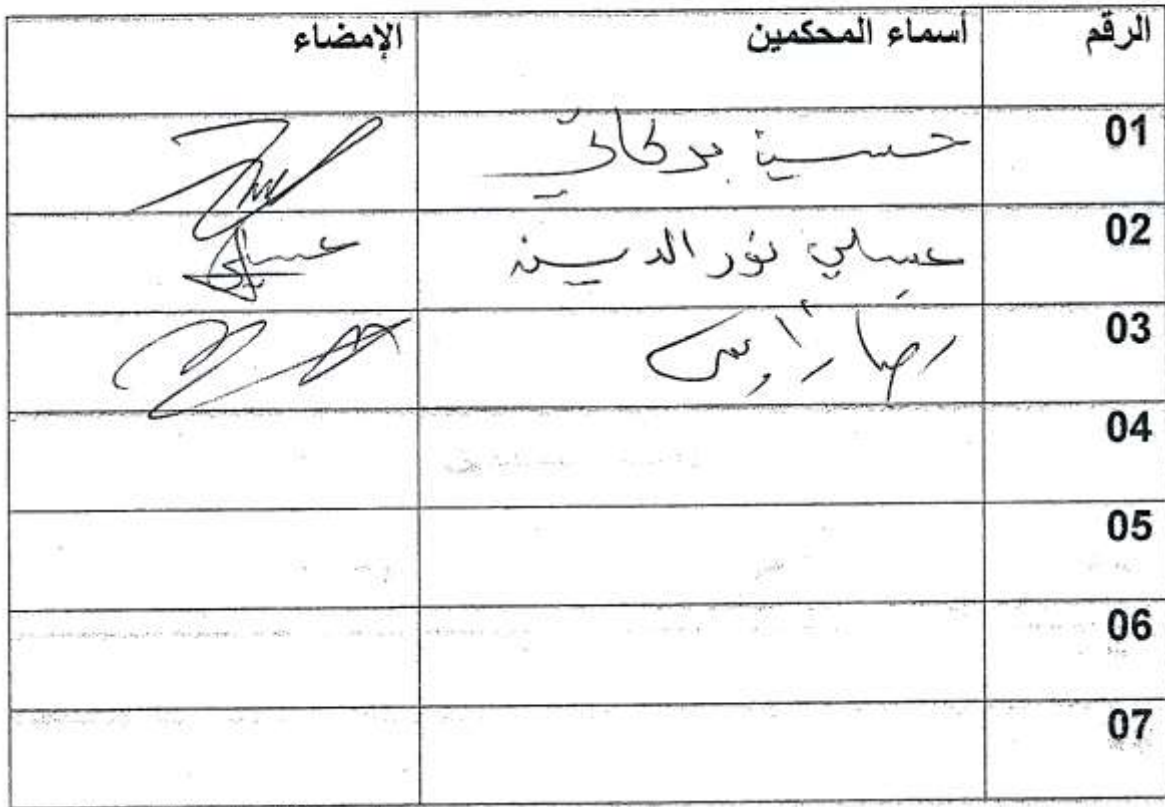 الرقم أسماء المحكمين الإمضاء
01 حسين
02 عسلي نور الدين عسلي
03
04
05
06
07